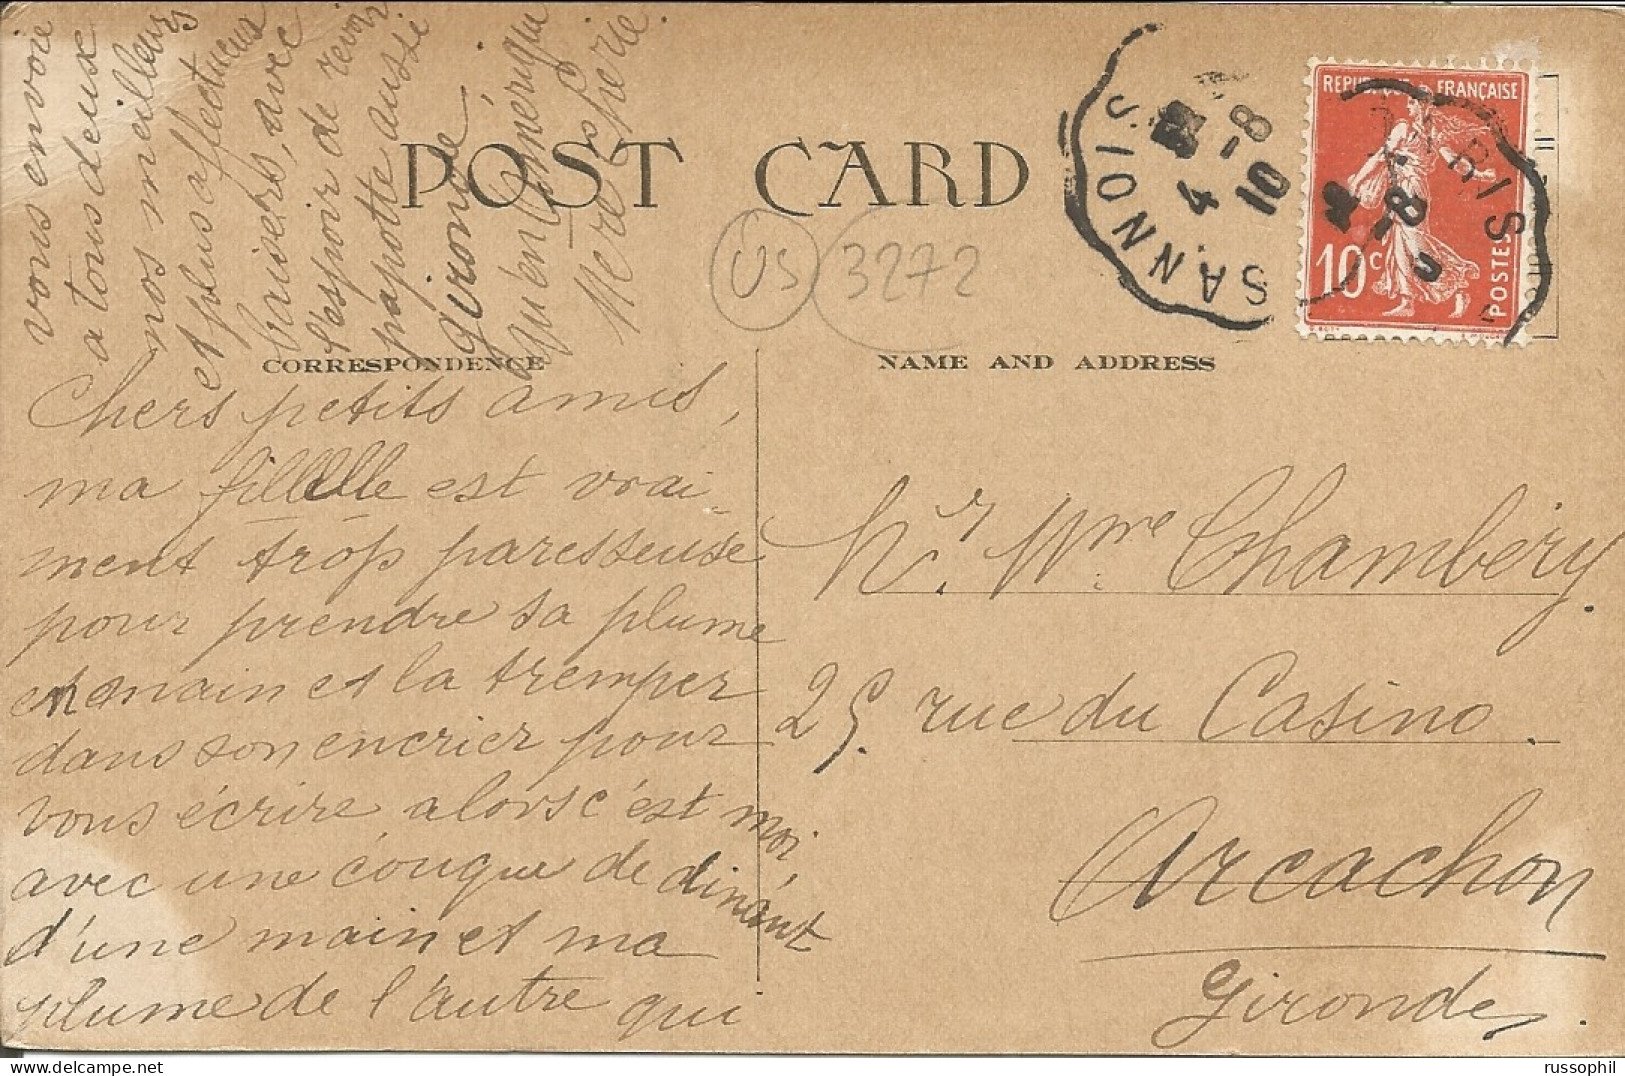 POST CARD
US 3272
CORRESPONDENCE
NAME AND ADDRESS
REPUBLIQUE FRANÇAISE
10c
POSTES
SANNOIS
PARIS
4 -8
10
Chers petits amis,
ma fillelle est vrai-
ment trop paresseuse
pour prendre sa plume
en main et la tremper
dans son encrier pour
vous écrire alors c'est moi,
avec une couque de dinant
d'une main et ma
plume de l'autre qui
vous envoie
a tous deux
nos meilleurs
et plus affectueux
baisers, avec
l'espoir de revoir
papotte aussi
gironde
qu'en Amérique
Mere
Mr. Mme Chambéry.
25. rue du Casino.
Arcachon
Gironde.
russophil
delcampe.net